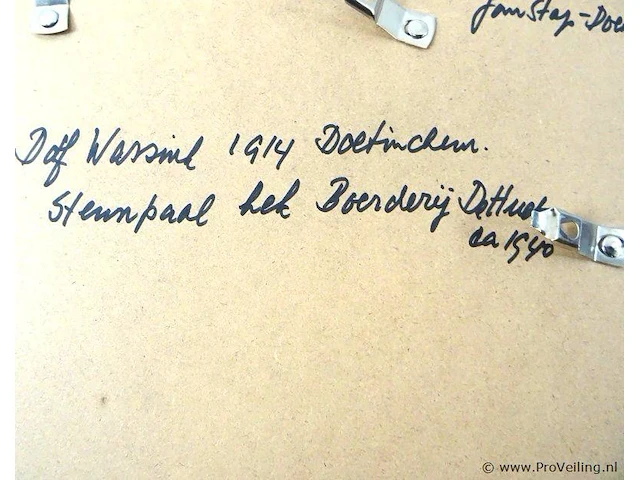 Jan Stap-Doe
Dolf Wassink 1914 Doetinchem.
Steunpaal hek Boerderij De
ca 1940
© www.ProVeiling.nl